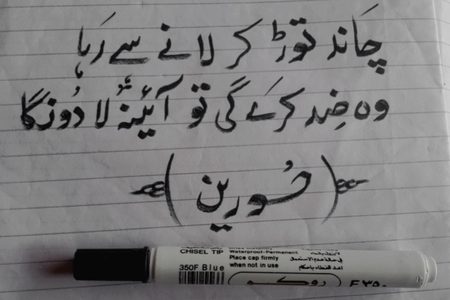 چاند توڑ کر لانے سے رہا
وہ ضد کرے گی تو آئینہ لا دُونگا
(حورین)
CHISEL TIP
Waterproof-Permanent
Place cap firmly
when not in use
350F Blue
روکو
F٣٥٠